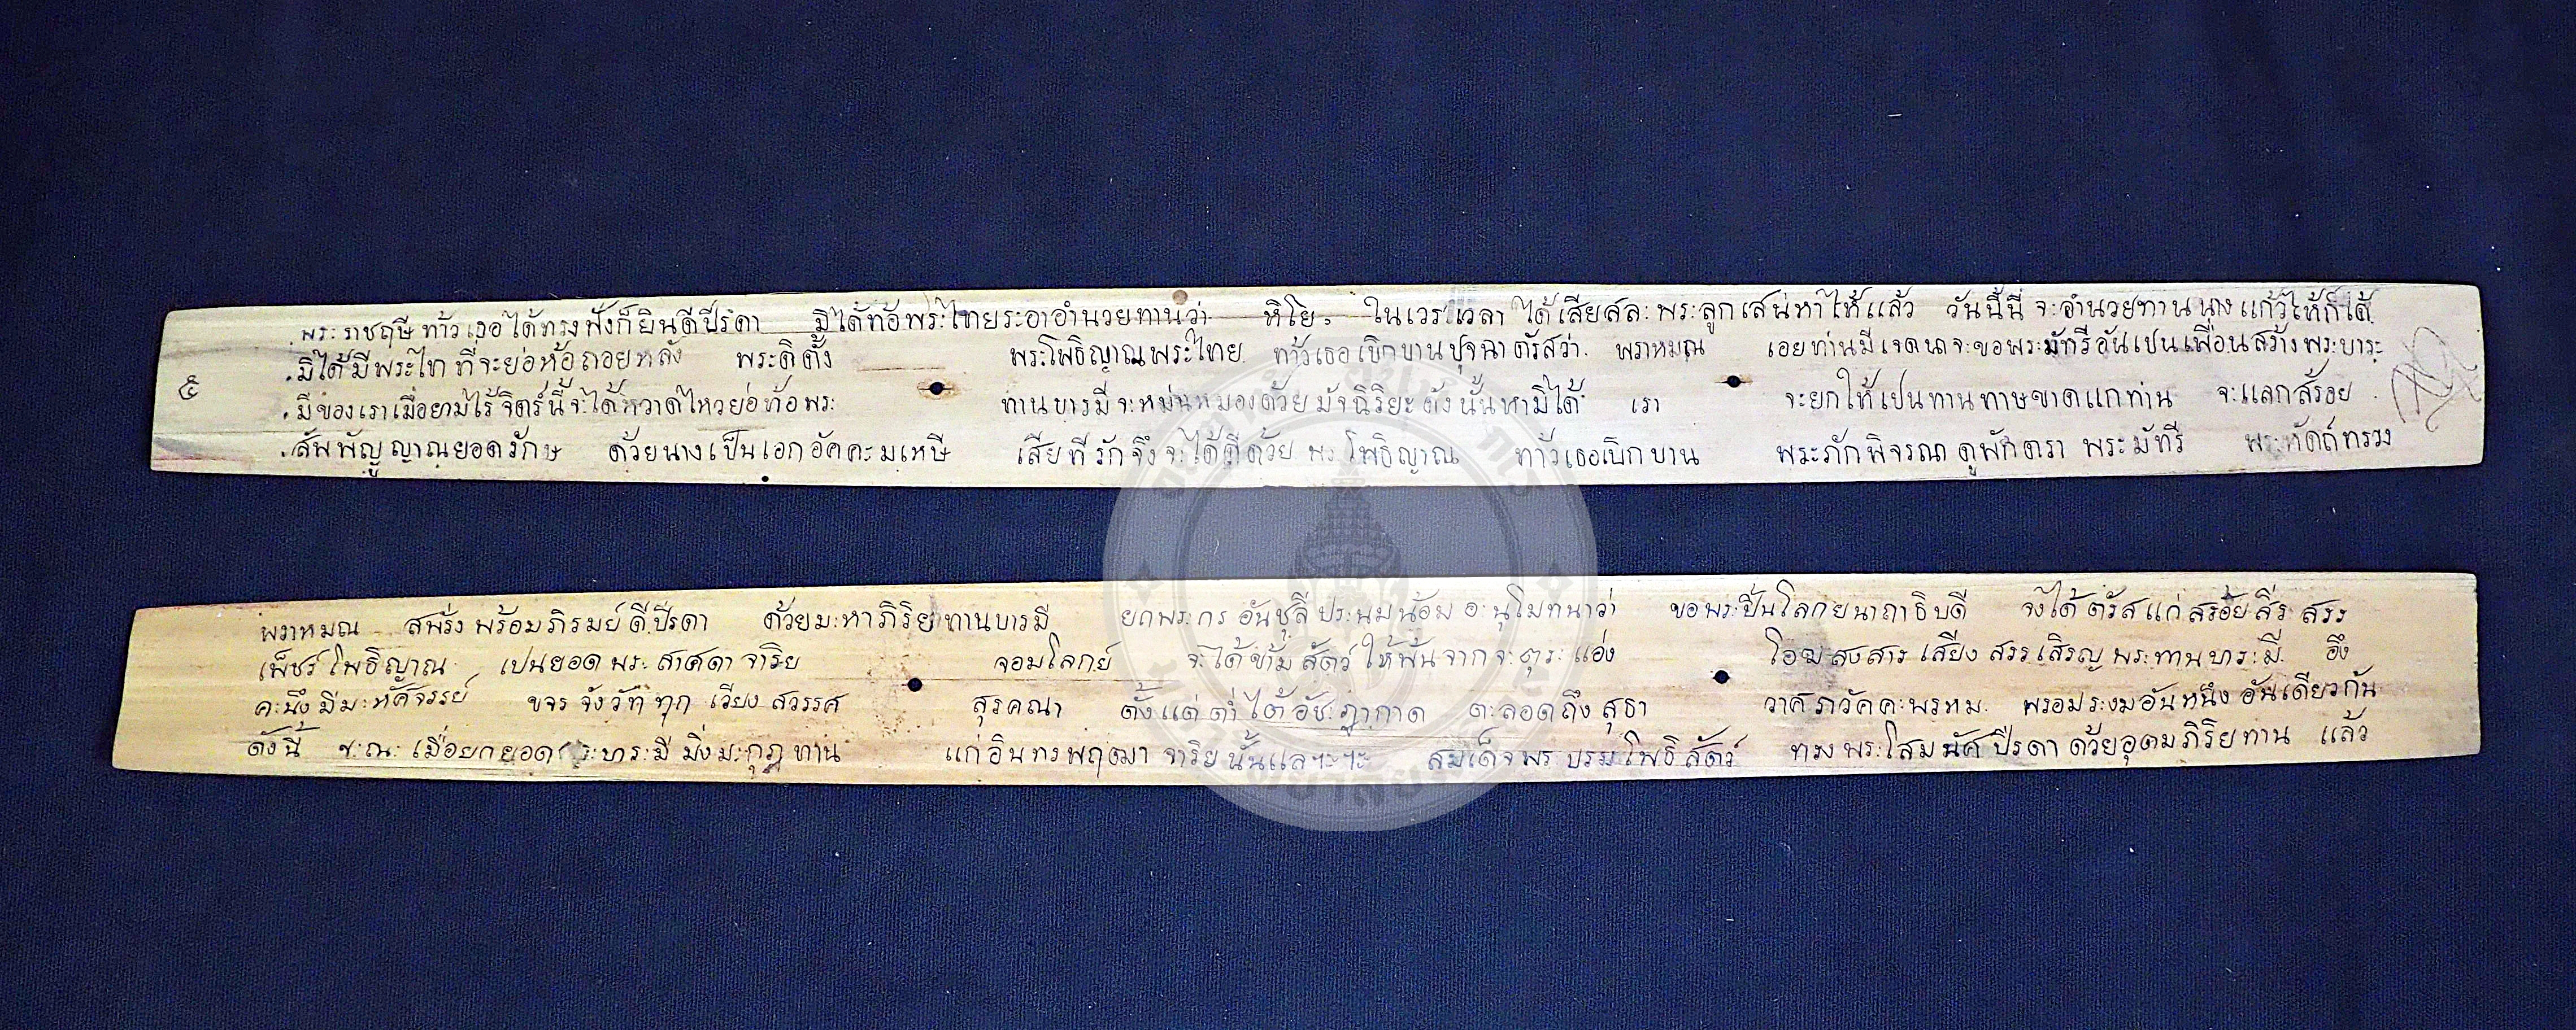 พระราชฤษีท้าวเธอได้ทรงฟังก็ยินดีปรีดา มิได้ท้อพระไทยระอาอำนวยทานว่า หิโย ในเวรเวลา ได้เสียสละพระลูกเสน่หาให้แล้ว วันนี้นี่ จะอำนวยทานนางแก้วให้ก็ได้
มิได้มีพระไทที่จะย่อห้อถอยหลัง พระดิตั้ง พระโพธิญาณพระไทย ท้าวเธอเบิกบานปุจฉาตรัสว่า พราหมณ เอยท่านมีเจตนาจะขอพระมัทรีอันเปนเพื่อนสร้างพระบาระ
๕
มีของเราเมื่อยามไร้ จิตร์นี้จะได้หวาดไหวย่อท้อพระ ทานบารมีจะหม่นหมองด้วยมัจฉิริยะดังนั้นหามิได้ เรา จะยกให้เปนทานทาษขาดแกท่าน จะแลกสร้อย
สัพพัญญูญาณยอดรักษ ด้วยนางเป็นเอกอัคคะมเหษี เสียทีรักจึงจะได้ดีด้วย พระโพธิญาณ ท้าวเธอเบิกบาน พระภักพิจรณาดูพักตรา พระมัทรี พระหัดถ์ทรวง
พราหมณ สพรั่งพร้อมภิรมย์ดีปรีดา ด้วยมะหาภิริยทานบารมี ยกพระกรอันชุลีประนมน้อมอะนุโมทนาว่า ขอพระปิ่นโลกยนาถาธิบดี จงได้ตรัสแก่สร้อยสีรสรร
เพ็ชร์โพธิญาณ เปนยอดพระสาศดาจาริย จอมโลกย์ จะได้ข้ามสัตว์ให้พ้นจากจะตุระแอ่ง โอฆสงสาร เสียงสรรเสริญพระทานบาระมี อึง
คะนึงมีมะหัศจรรย์ ขจรจังวัททุกเวียงสวรรค สุรคณา ตั้งแต่ต่ำใต้อัชะฎากาด ตะลอดถึงสุธา วาศภวัคคะพรหม พรอมระงมอันหนึงอันเดียวกัน
ดังนี้ ขะณะเมื่อยกยอดพระบาระมีมิ่งมะกุฎทาน แก่อินทรพฤฒาจาริยนั้นแลฯะฯะ สมเด็จพระบรมโพธิสัตว์ ทรงพระโสมนัศปรีดาด้วยอุตมภิริยทาน แล้ว